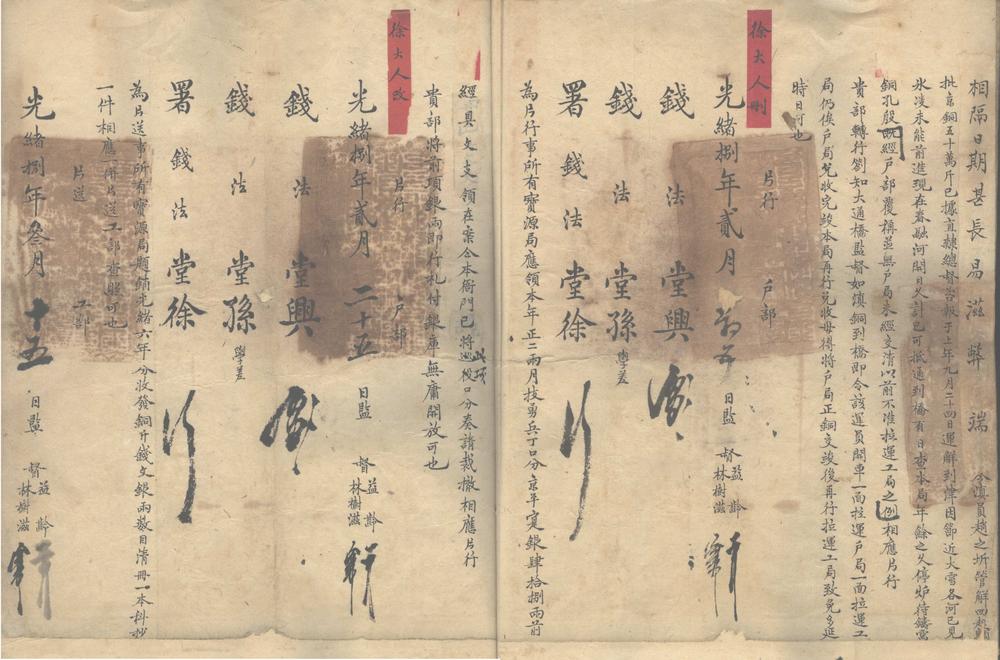 相隔日期甚長易滋弊端今滇員趙之圻管解四起
批京銅五十萬斤已據直隸總督咨報于上年九月二十四日運解到津因節近大雪各河已見
氷凌未能前進現在春融河開日久計已可抵通到橋有日查本局年餘之久停炉待鑄需
銅孔殷既經戶部覆稱並無戶局未經交清以前不准拉運工局之例相應片行
貴部轉行劄知大通橋監督如滇銅到橋即令該運員開車一面拉運戶局一面拉運工
局仍俟戶局兌收完竣本局再行兌收毋得將戶局正銅交竣後再行拉運工局致免多延
時日可也
徐大人刪
片行 戶部
光緒捌年貳月 日監督 益齡 林樹滋
錢法堂興
錢法堂孫 學差
署錢法堂徐 行
為片行事所有寶源局應領本年正二兩月技勇兵丁口分京平實銀肆拾捌兩前
經具文支領在案今本衙門已將此項口分奏請裁撤相應片行
貴部將前項銀兩即行札付銀庫無庸開放可也
徐大人改
片行 戶部
光緒捌年貳月二十五日監督 益齡 林樹滋
錢法堂興
錢法堂孫 學差
署錢法堂徐 行
為片送事所有寶源局題銷光緒六年分收發銅斤錢文銀兩数目清冊一本科抄
一件相應一併片送工部查照可也
片送 工部
光緒捌年叁月十五日監督 益齡 林樹滋